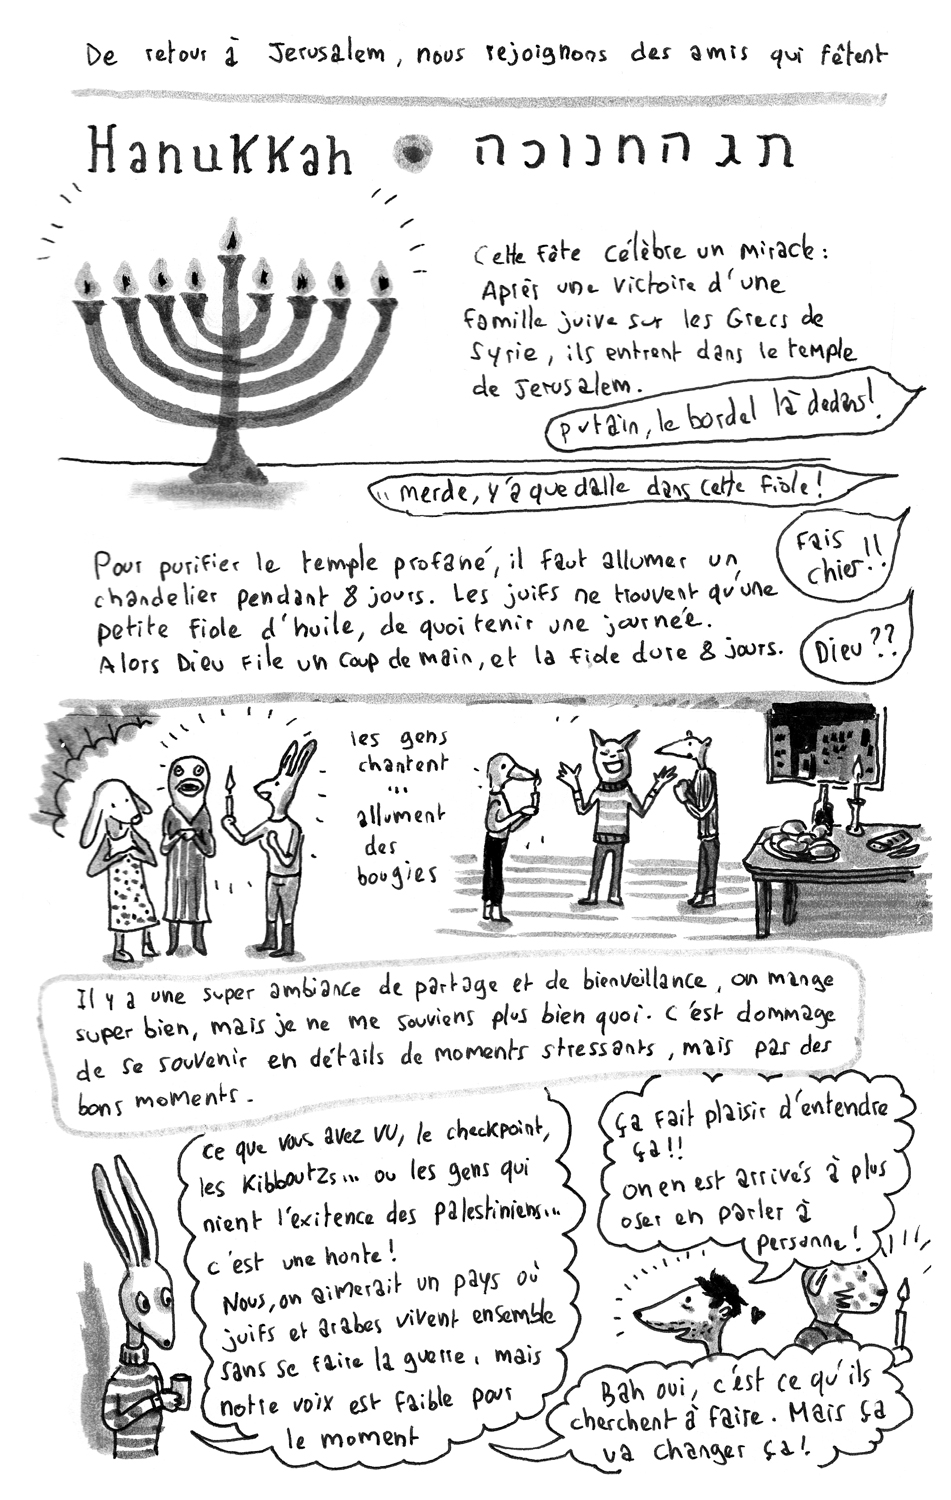 De retour à Jerusalem, nous rejoignons des amis qui fêtent
Hanukkah • תג החנוכה
Cette fête célèbre un miracle :
Après une victoire d'une
famille juive sur les Grecs de
Syrie, ils entrent dans le temple
de Jerusalem.
putain, le bordel là dedans!
merde, y'a que dalle dans cette fiole!
Fais
chier!!
Pour purifier le temple profané, il faut allumer un
chandelier pendant 8 jours. Les juifs ne trouvent qu'une
petite fiole d'huile, de quoi tenir une journée.
Alors Dieu file un coup de main, et la fiole dure 8 jours.
Dieu??
les gens
chantent
...
allument
des
bougies
Il y a une super ambiance de partage et de bienveillance, on mange
super bien, mais je ne me souviens plus bien quoi. C'est dommage
de se souvenir en détails de moments stressants, mais pas des
bons moments.
Ce que vous avez vu, le checkpoint,
les Kibboutzs... ou les gens qui
nient l'exitence des palestiniens...
c'est une honte!
Nous, on aimerait un pays où
juifs et arabes vivent ensemble
sans se faire la guerre, mais
notre voix est faible pour
le moment
ça fait plaisir d'entendre
ça!!
on en est arrivés à plus
oser en parler à
personne!
Bah oui, c'est ce qu'ils
cherchent à faire. Mais ça
va changer ça!